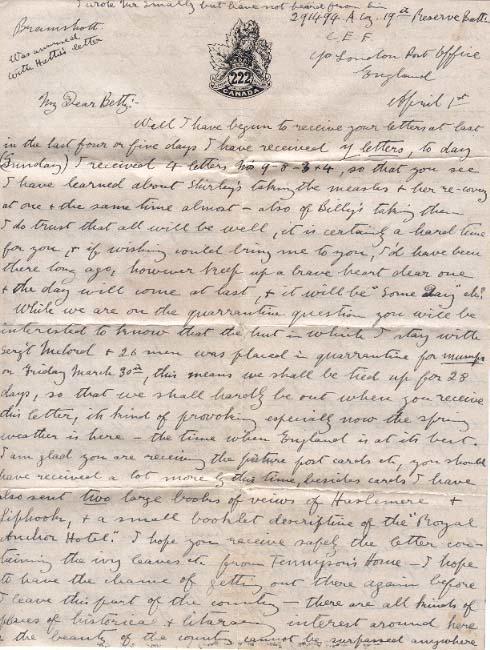 I wrote Mr Smally but have not heard from him
291494. A Coy. 19th Reserve Batt.
C.E.F.
c/o London Post Office
England
Bramshott.
Was amused
with Hatta's letter
222
CANADA
April 1st
My Dear Betty:-
Well I have begun to receive your letters at last
in the last four or five days I have received 7 letters, to day
(Sunday) I received 4 letters No 9-8-3+4, so that you see
I have learned about Shirley's taking the measles & her recovery
at one & the same time almost - also of Billy's taking them
I do trust that all will be well, it is certainly a hard time
for you, & if wishing could bring me to you, I'd have been
there long ago, however keep up a brave heart dear one
& the day will come at last, & it will be "Some Day" eh?
While we are on the quarantine question you will be
interested to know that the hut in which I stay with
Serg't & 26 men was placed in quarantine for mumps
on Friday March 30th, this means we shall be tied up for 28
days, so that we shall hardly be out when you receive
this letter, its kind of provoking especially now the spring
weather is here - the time when England is at its best.
I am glad you are receiving the picture post cards etc, you should
have received a lot more by this time, besides cards I have
also sent two large books of veiws of Haslemere &
Liphook, & a small booklet descriptive of the "Royal
Anchor Hotel". I hope you receive safely the letter con-
taining the ivy leaves etc from Tennyson's Home - I hope
to have the chance of getting out there again before
I leave this part of the country - there are all kinds of
places of historical & literary interest around here
& the beauty of the country cannot be surpassed anywhere